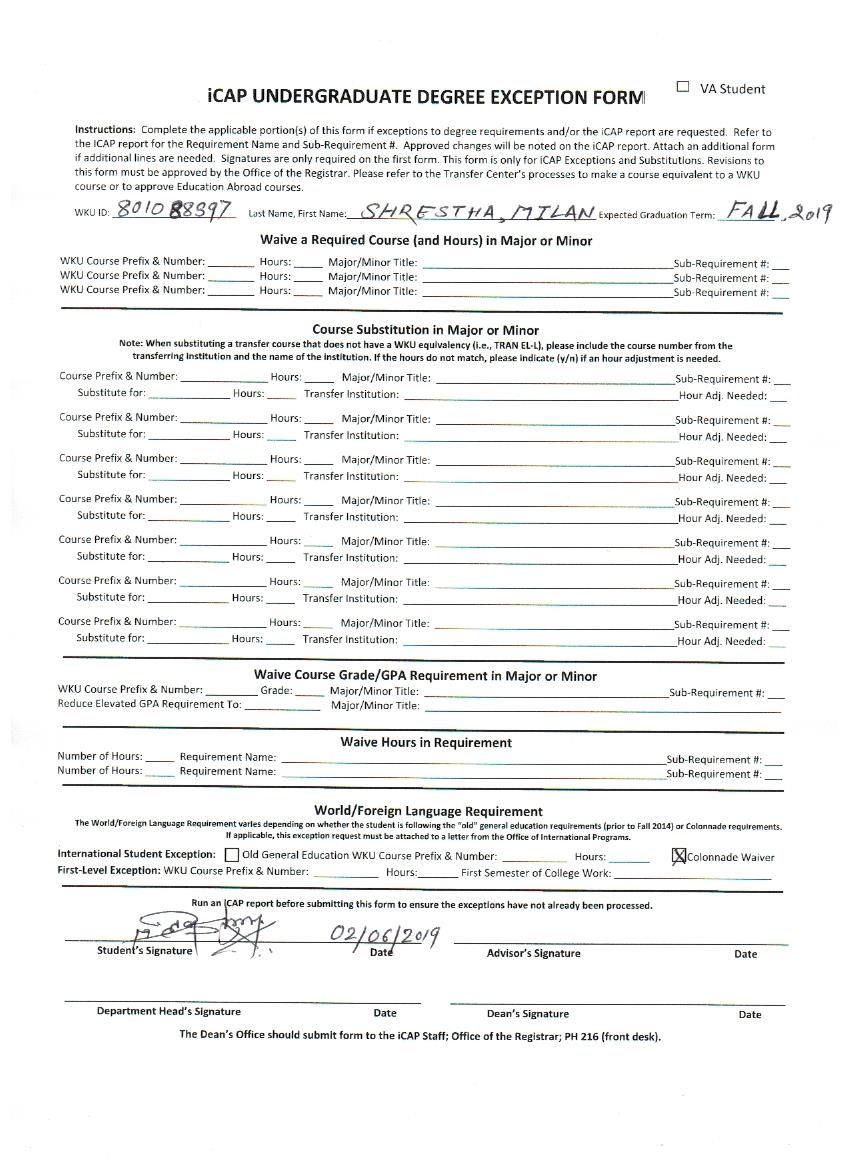 iCAP UNDERGRADUATE DEGREE EXCEPTION FORM
☐ VA Student
Instructions: Complete the applicable portion(s) of this form if exceptions to degree requirements and/or the iCAP report are requested. Refer to
the ICAP report for the Requirement Name and Sub-Requirement #. Approved changes will be noted on the iCAP report. Attach an additional form
if additional lines are needed. Signatures are only required on the first form. This form is only for iCAP Exceptions and Substitutions. Revisions to
this form must be approved by the Office of the Registrar. Please refer to the Transfer Center's processes to make a course equivalent to a WKU
course or to approve Education Abroad courses.
WKU ID: 801088397 Last Name, First Name: SHRESTHA, MILAN Expected Graduation Term: FALL, 2019
Waive a Required Course (and Hours) in Major or Minor
WKU Course Prefix & Number: ________ Hours: _____ Major/Minor Title: ________ Sub-Requirement #: ___
WKU Course Prefix & Number: ________ Hours: _____ Major/Minor Title: ________ Sub-Requirement #: ___
WKU Course Prefix & Number: ________ Hours: _____ Major/Minor Title: ________ Sub-Requirement #: ___
Course Substitution in Major or Minor
Note: When substituting a transfer course that does not have a WKU equivalency (i.e., TRAN EL-L), please include the course number from the
transferring institution and the name of the institution. If the hours do not match, please indicate (y/n) if an hour adjustment is needed.
Course Prefix & Number: ________ Hours: _____ Major/Minor Title: ________ Sub-Requirement #: ___
Substitute for: ________ Hours: _____ Transfer Institution: ________ Hour Adj. Needed: ___
Course Prefix & Number: ________ Hours: _____ Major/Minor Title: ________ Sub-Requirement #: ___
Substitute for: ________ Hours: _____ Transfer Institution: ________ Hour Adj. Needed: ___
Course Prefix & Number: ________ Hours: _____ Major/Minor Title: ________ Sub-Requirement #: ___
Substitute for: ________ Hours: _____ Transfer Institution: ________ Hour Adj. Needed: ___
Course Prefix & Number: ________ Hours: _____ Major/Minor Title: ________ Sub-Requirement #: ___
Substitute for: ________ Hours: _____ Transfer Institution: ________ Hour Adj. Needed: ___
Course Prefix & Number: ________ Hours: _____ Major/Minor Title: ________ Sub-Requirement #: ___
Substitute for: ________ Hours: _____ Transfer Institution: ________ Hour Adj. Needed: ___
Course Prefix & Number: ________ Hours: _____ Major/Minor Title: ________ Sub-Requirement #: ___
Substitute for: ________ Hours: _____ Transfer Institution: ________ Hour Adj. Needed: ___
Course Prefix & Number: ________ Hours: _____ Major/Minor Title: ________ Sub-Requirement #: ___
Substitute for: ________ Hours: _____ Transfer Institution: ________ Hour Adj. Needed: ___
Waive Course Grade/GPA Requirement in Major or Minor
WKU Course Prefix & Number: ________ Grade: _____ Major/Minor Title: ________ Sub-Requirement #: ___
Reduce Elevated GPA Requirement To: ________ Major/Minor Title: ________
Waive Hours in Requirement
Number of Hours: _____ Requirement Name: ________ Sub-Requirement #: ___
Number of Hours: _____ Requirement Name: ________ Sub-Requirement #: ___
World/Foreign Language Requirement
The World/Foreign Language Requirement varies depending on whether the student is following the "old" general education requirements (prior to Fall 2014) or Colonnade requirements.
If applicable, this exception request must be attached to a letter from the Office of International Programs.
International Student Exception: ☐ Old General Education WKU Course Prefix & Number: ________ Hours: ______ ☒ Colonnade Waiver
First-Level Exception: WKU Course Prefix & Number: ________ Hours:______ First Semester of College Work: ________
Run an ICAP report before submitting this form to ensure the exceptions have not already been processed.
02/06/2019
Student's Signature Date Advisor's Signature Date
Department Head's Signature Date Dean's Signature Date
The Dean's Office should submit form to the iCAP Staff; Office of the Registrar; PH 216 (front desk).